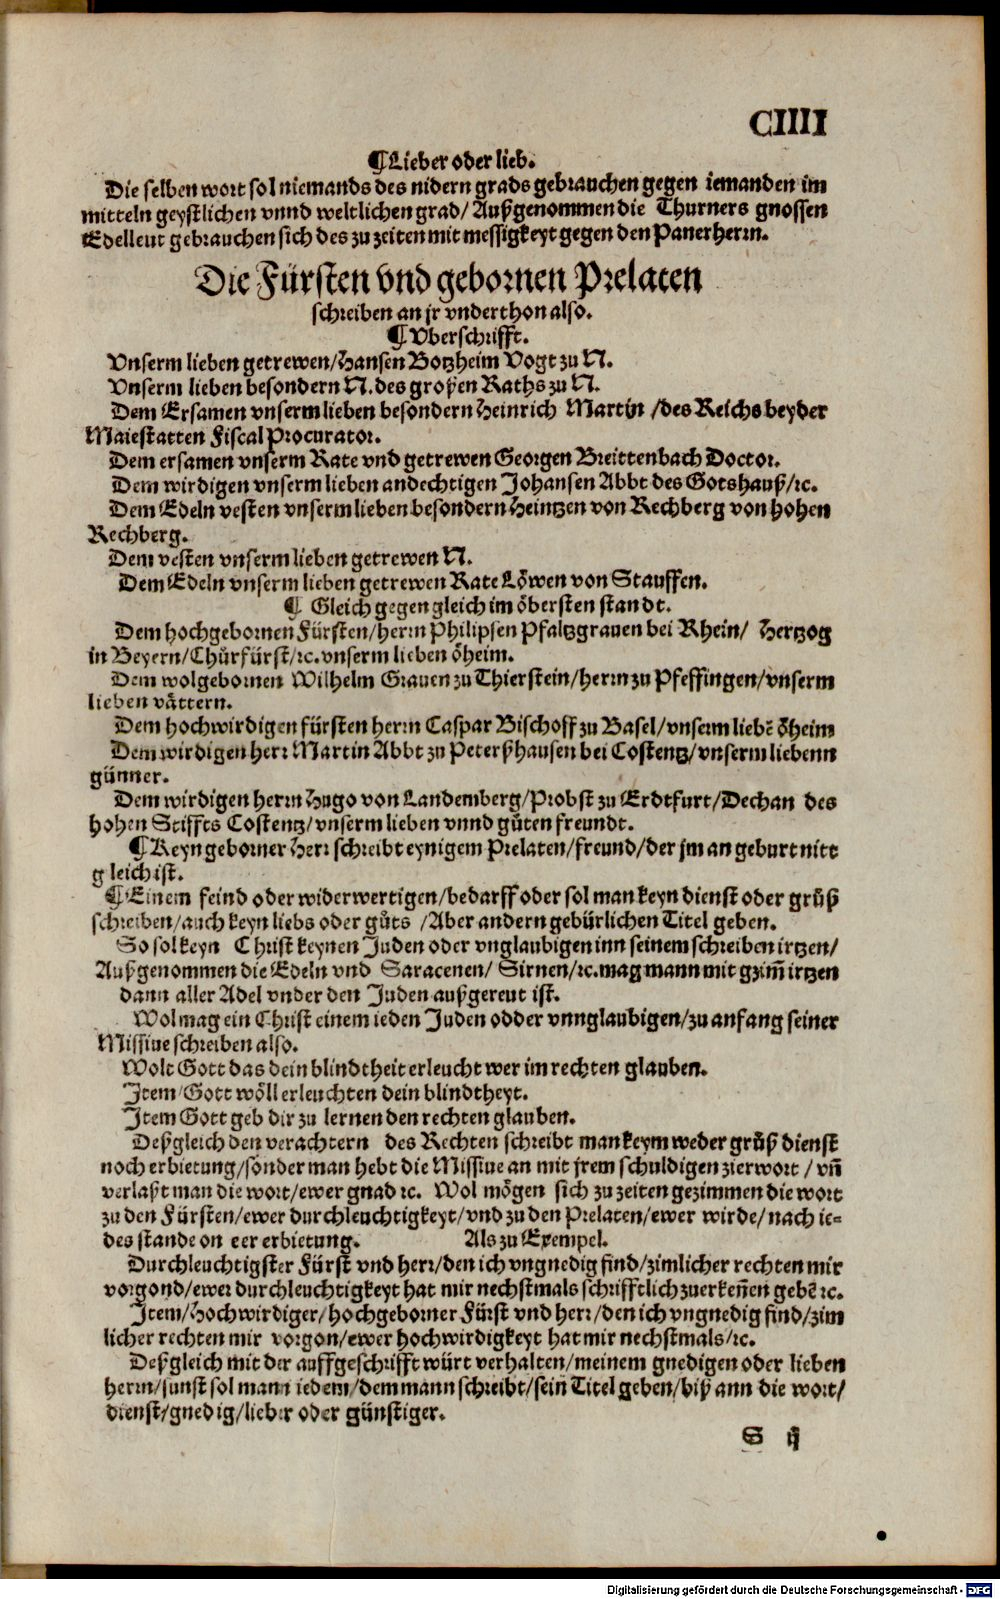 CIIII
¶Lieber oder lieb.
Die selben wort sol niemands des nidern grads gebrauchen gegen iemanden im
mitteln geystlichen vnnd weltlichen grad/ Außgenommen die Thurners gnossen
Edelleut gebrauchen sich des zu zeiten mit messigkeyt gegen den Panerherrn.
Die Fürsten vnd gebornen Prelaten
schreiben an jr vnderthon also.
¶Vberschrifft.
Vnserm lieben getrewen/Hansen Botzheim Vogt zu N.
Vnserm lieben besondern N. des großen Raths zu N.
Dem Ersamen vnserm lieben besondern Heinrich Martin /des Reichs beyder
Maiestatten Fiscal Procurator.
Dem ersamen vnserm Rate vnd getrewen Georgen Breittenbach Doctor.
Dem wirdigen vnserm lieben andechtigen Johansen Abbt des Gotshauß/⁊c.
Dem Edeln vesten vnserm lieben besondern Heintzen von Rechberg von hohen
Rechberg.
Dem vesten vnserm lieben getrewen N.
Dem Edeln vnserm lieben getrewen Rate Löwen von Stauffen.
¶ Gleich gegen gleich im öbersten standt.
Dem hochgebornen Fürsten/herrn Philipsen Pfaltzgrauen bei Rhein/ Hertzog
in Beyern/Chůrfürst/⁊c. vnserm lieben öheim.
Dem wolgebornen Wilhelm Grauen zu Thierstein/herrn zu Pfeffingen/vnserm
lieben vättern.
Dem hochwirdigen fürsten herrn Caspar Bischoff zu Basel/vnserm liebē öheim
Dem wirdigen herr Martin Abbt zu Peterßhausen bei Costentz/vnserm liebenn
günner.
Dem wirdigen herrn Hugo von Landemberg/Probst zu Erdtfurt/Dechan des
hohen Stiffts Costentz/vnserm lieben vnnd gůten freundt.
¶Keyn geborner Herr schreibt eynigem Prelaten/freund/der jm an geburt nitt
gleich ist.
¶Einem feind oder widerwertigen/bedarff oder sol man keyn dienst oder grůß
schreiben/auch keyn liebs oder gůts /Aber andern gebürlichen Titel geben.
So sol keyn Christ keynen Juden oder vnglaubigen inn seinem schreiben irtzen/
Außgenommen die Edeln vnd Saracenen/ Sirnen/⁊c. mag mann mit gzim̄ irtzen
dann aller Adel vnder den Juden außgereut ist.
Wol mag ein Christ einem ieden Juden odder vnnglaubigen/zu anfang seiner
Missiue schreiben also.
Wolt Gott das dein blindtheit erleucht wer im rechten glauben.
Item/Gott wöll erleuchten dein blindtheyt.
Item Gott geb dir zu lernen den rechten glauben.
Deßgleich den verachtern des Rechten schreibt man keym weder grůß dienst
noch erbietung/sonder man hebt die Missiue an mit jrem schuldigen zierwort / vn̄
verlaßt man die wort/ewer gnad ⁊c. Wol mögen sich zu zeiten gezimmen die wort
zu den Fürsten/ewer durchleuchtigkeyt/vnd zu den Prelaten/ewer wirde/nach ie=
des stande on eer erbietung. Als zu Exempel.
Durchleuchtigster Fürst vnd herr/den ich vngnedig find/zimlicher rechten mir
vorgond/ewer durchleuchtigkeyt hat mir nechstmals schrifftlich zuerkeñen gebē ⁊c.
Item/Hochwirdiger/hochgeborner Fürst vnd herr/den ich vngnedig find/zim
licher rechten mir vorgon/ewer hochwirdigkeyt hat mir nechstmals/⁊c.
Deßgleich mit der auffgeschrifft würt verhalten/meinem gnedigen oder lieben
herrn/sunst sol mann iedem/dem mann schreibt/sein Titel geben/biß ann die wort/
dienst/gnedig/lieber oder günstiger.
S ij
Digitalisierung gefördert durch die Deutsche Forschungsgemeinschaft - DFG